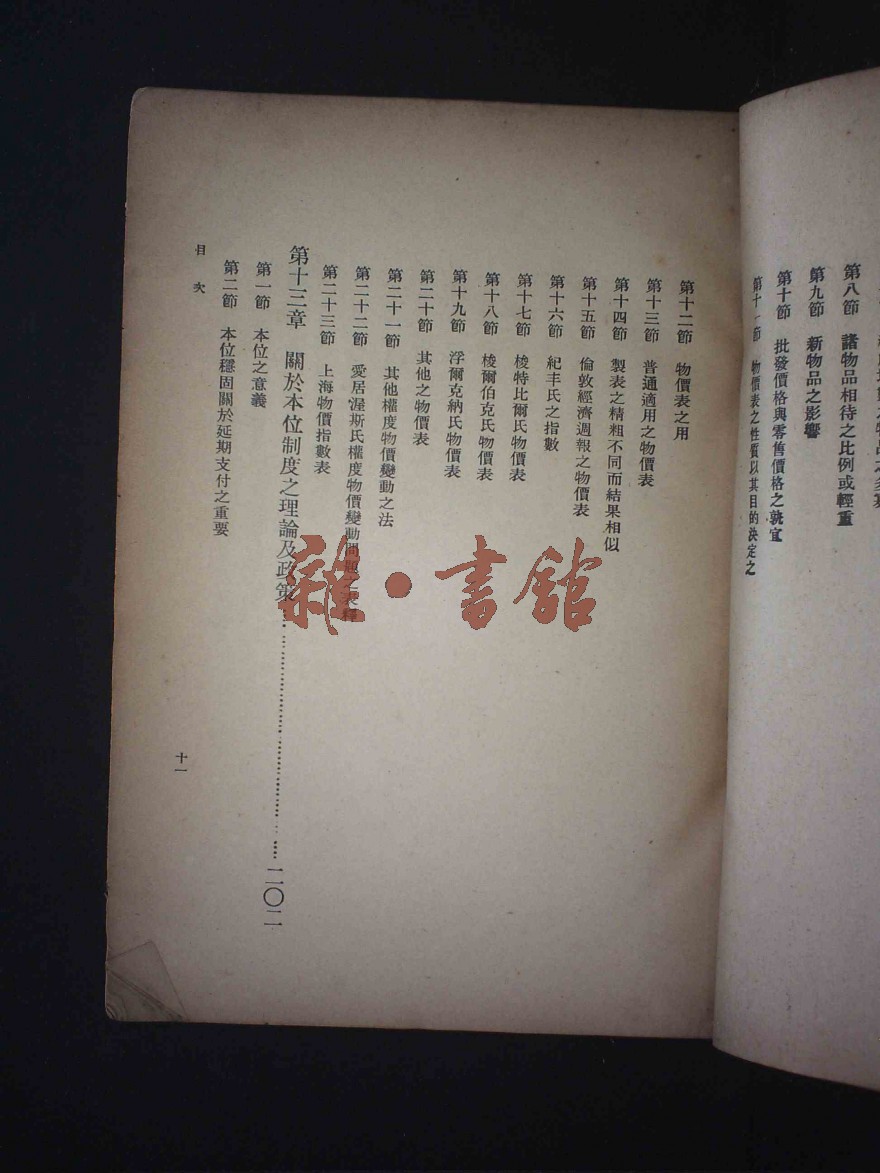 第八節　諸物品相待之比例或輕重
第九節　新物品之影響
第十節　批發價格與零售價格之孰宜
第十一節　物價表之性質以其目的決定之
第十二節　物價表之用
第十三節　普通適用之物價表
第十四節　製表之精粗不同而結果相似
第十五節　倫敦經濟週報之物價表
第十六節　紀丰氏之指數
第十七節　梭特比爾氏物價表
第十八節　梭爾伯克氏物價表
第十九節　浮爾克納氏物價表
第二十節　其他之物價表
第二十一節　其他權度物價變動之法
第二十二節　愛居渥斯氏權度物價變動問題之
第二十三節　上海物價指數表
第十三章　關於本位制度之理論及政策……二〇二
第一節　本位之意義
第二節　本位穩固關於延期支付之重要
目次
十一
雜·書館